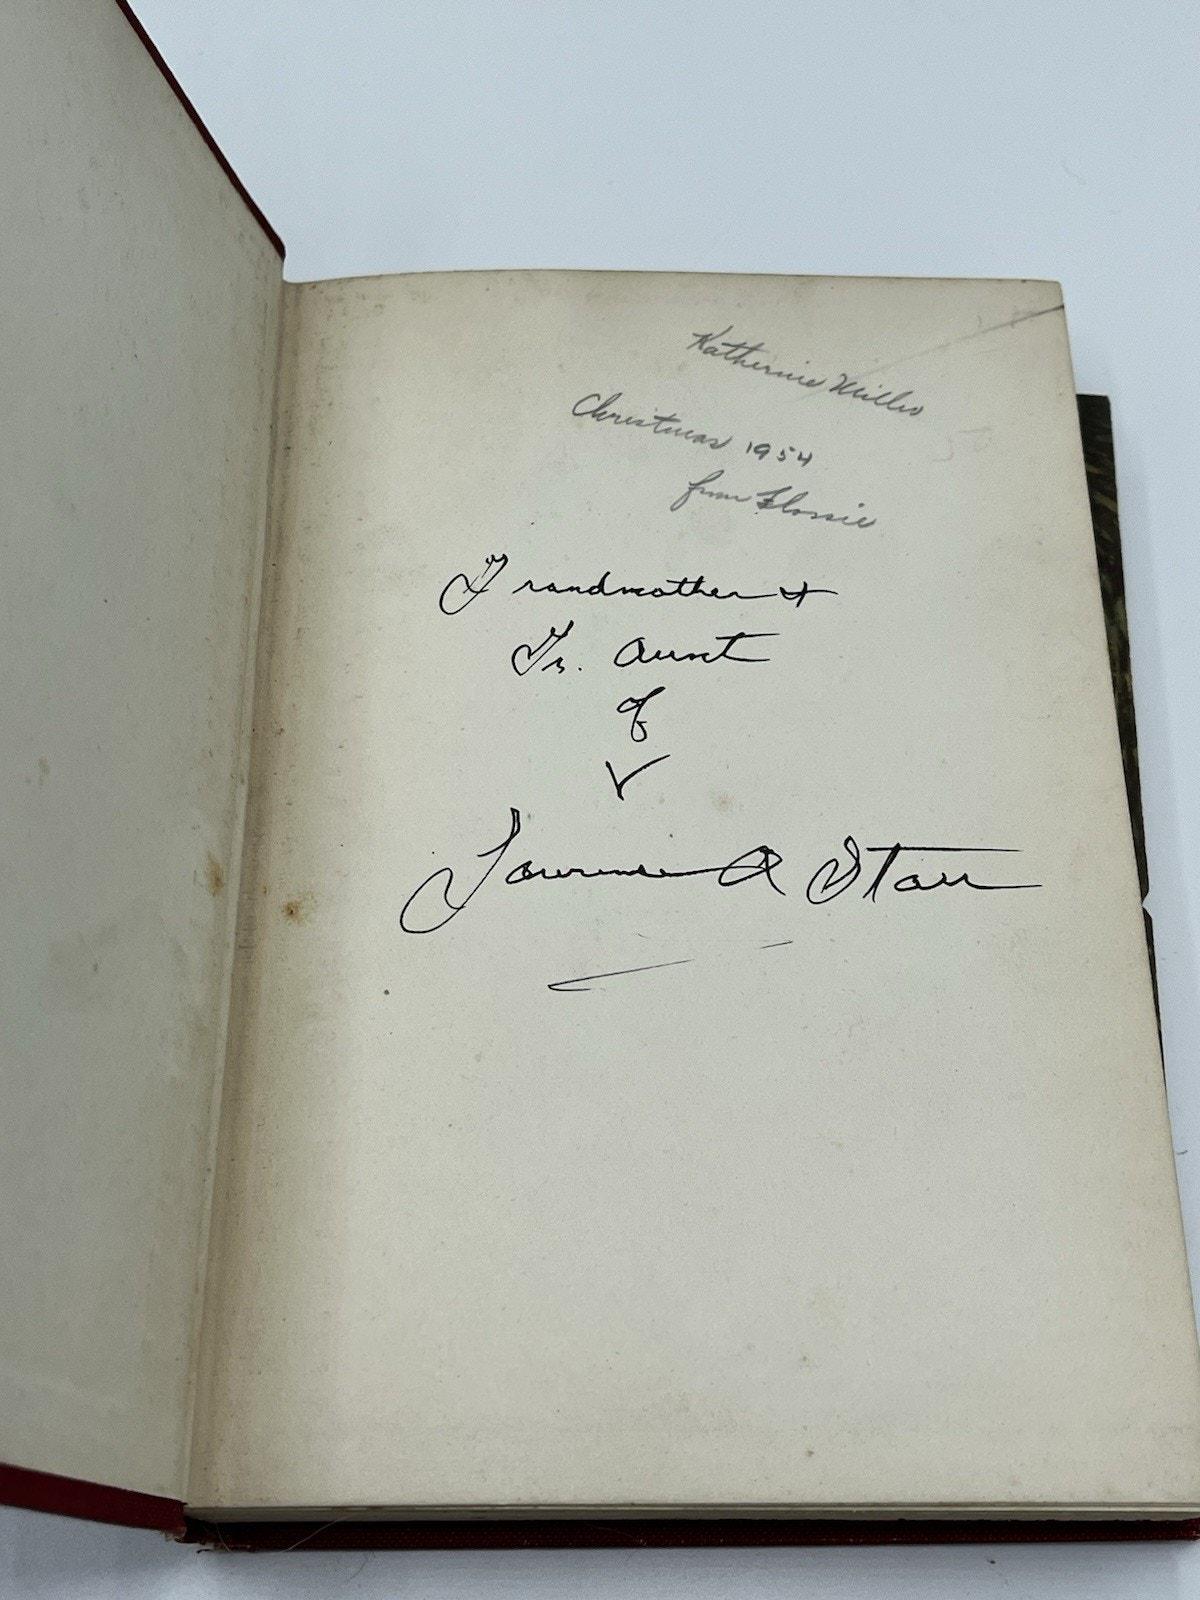 Katherine Miller
Christmas 1954
from Flossie
Grandmother +
Gr. Aunt
of
Lawrence A Starr